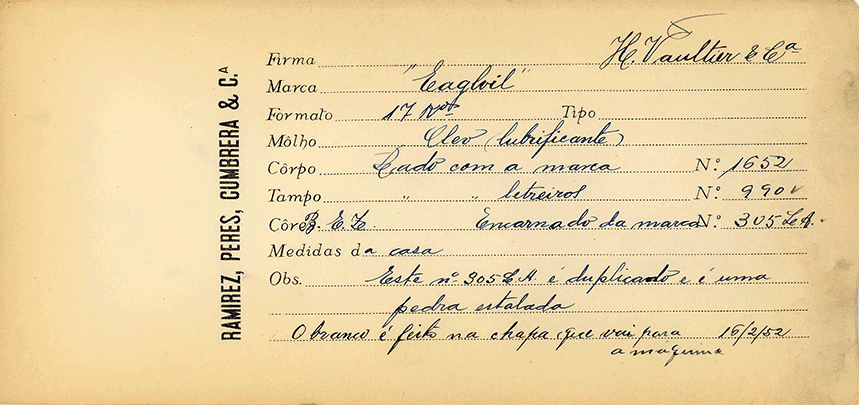 RAMIREZ, PERES, CUMBRERA & C.ª
Firma H. Vaultier & Cª
Marca "Eagloil"
Formato 17 Tipo
Môlho Oleo (lubrificante)
Côrpo Lado com a marca N.º 1652
Tampo " " letreiros N.º 990
Côres B. E. Encarnado da marca N.º 305 L A.
Medidas da casa
Obs. Este nº 305 L A é duplicado e é uma
pedra estalada
O branco é feito na chapa que vai para 16/2/52
a maquina